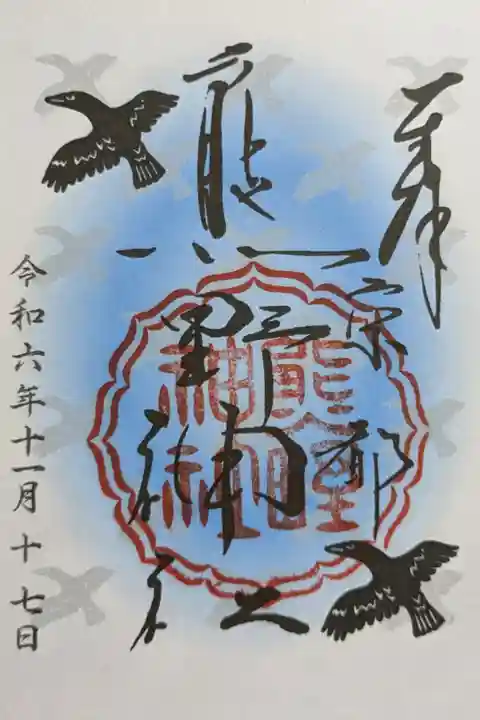 奉拝
京都
熊野神社
熊野
神社
令和六年十一月十七日